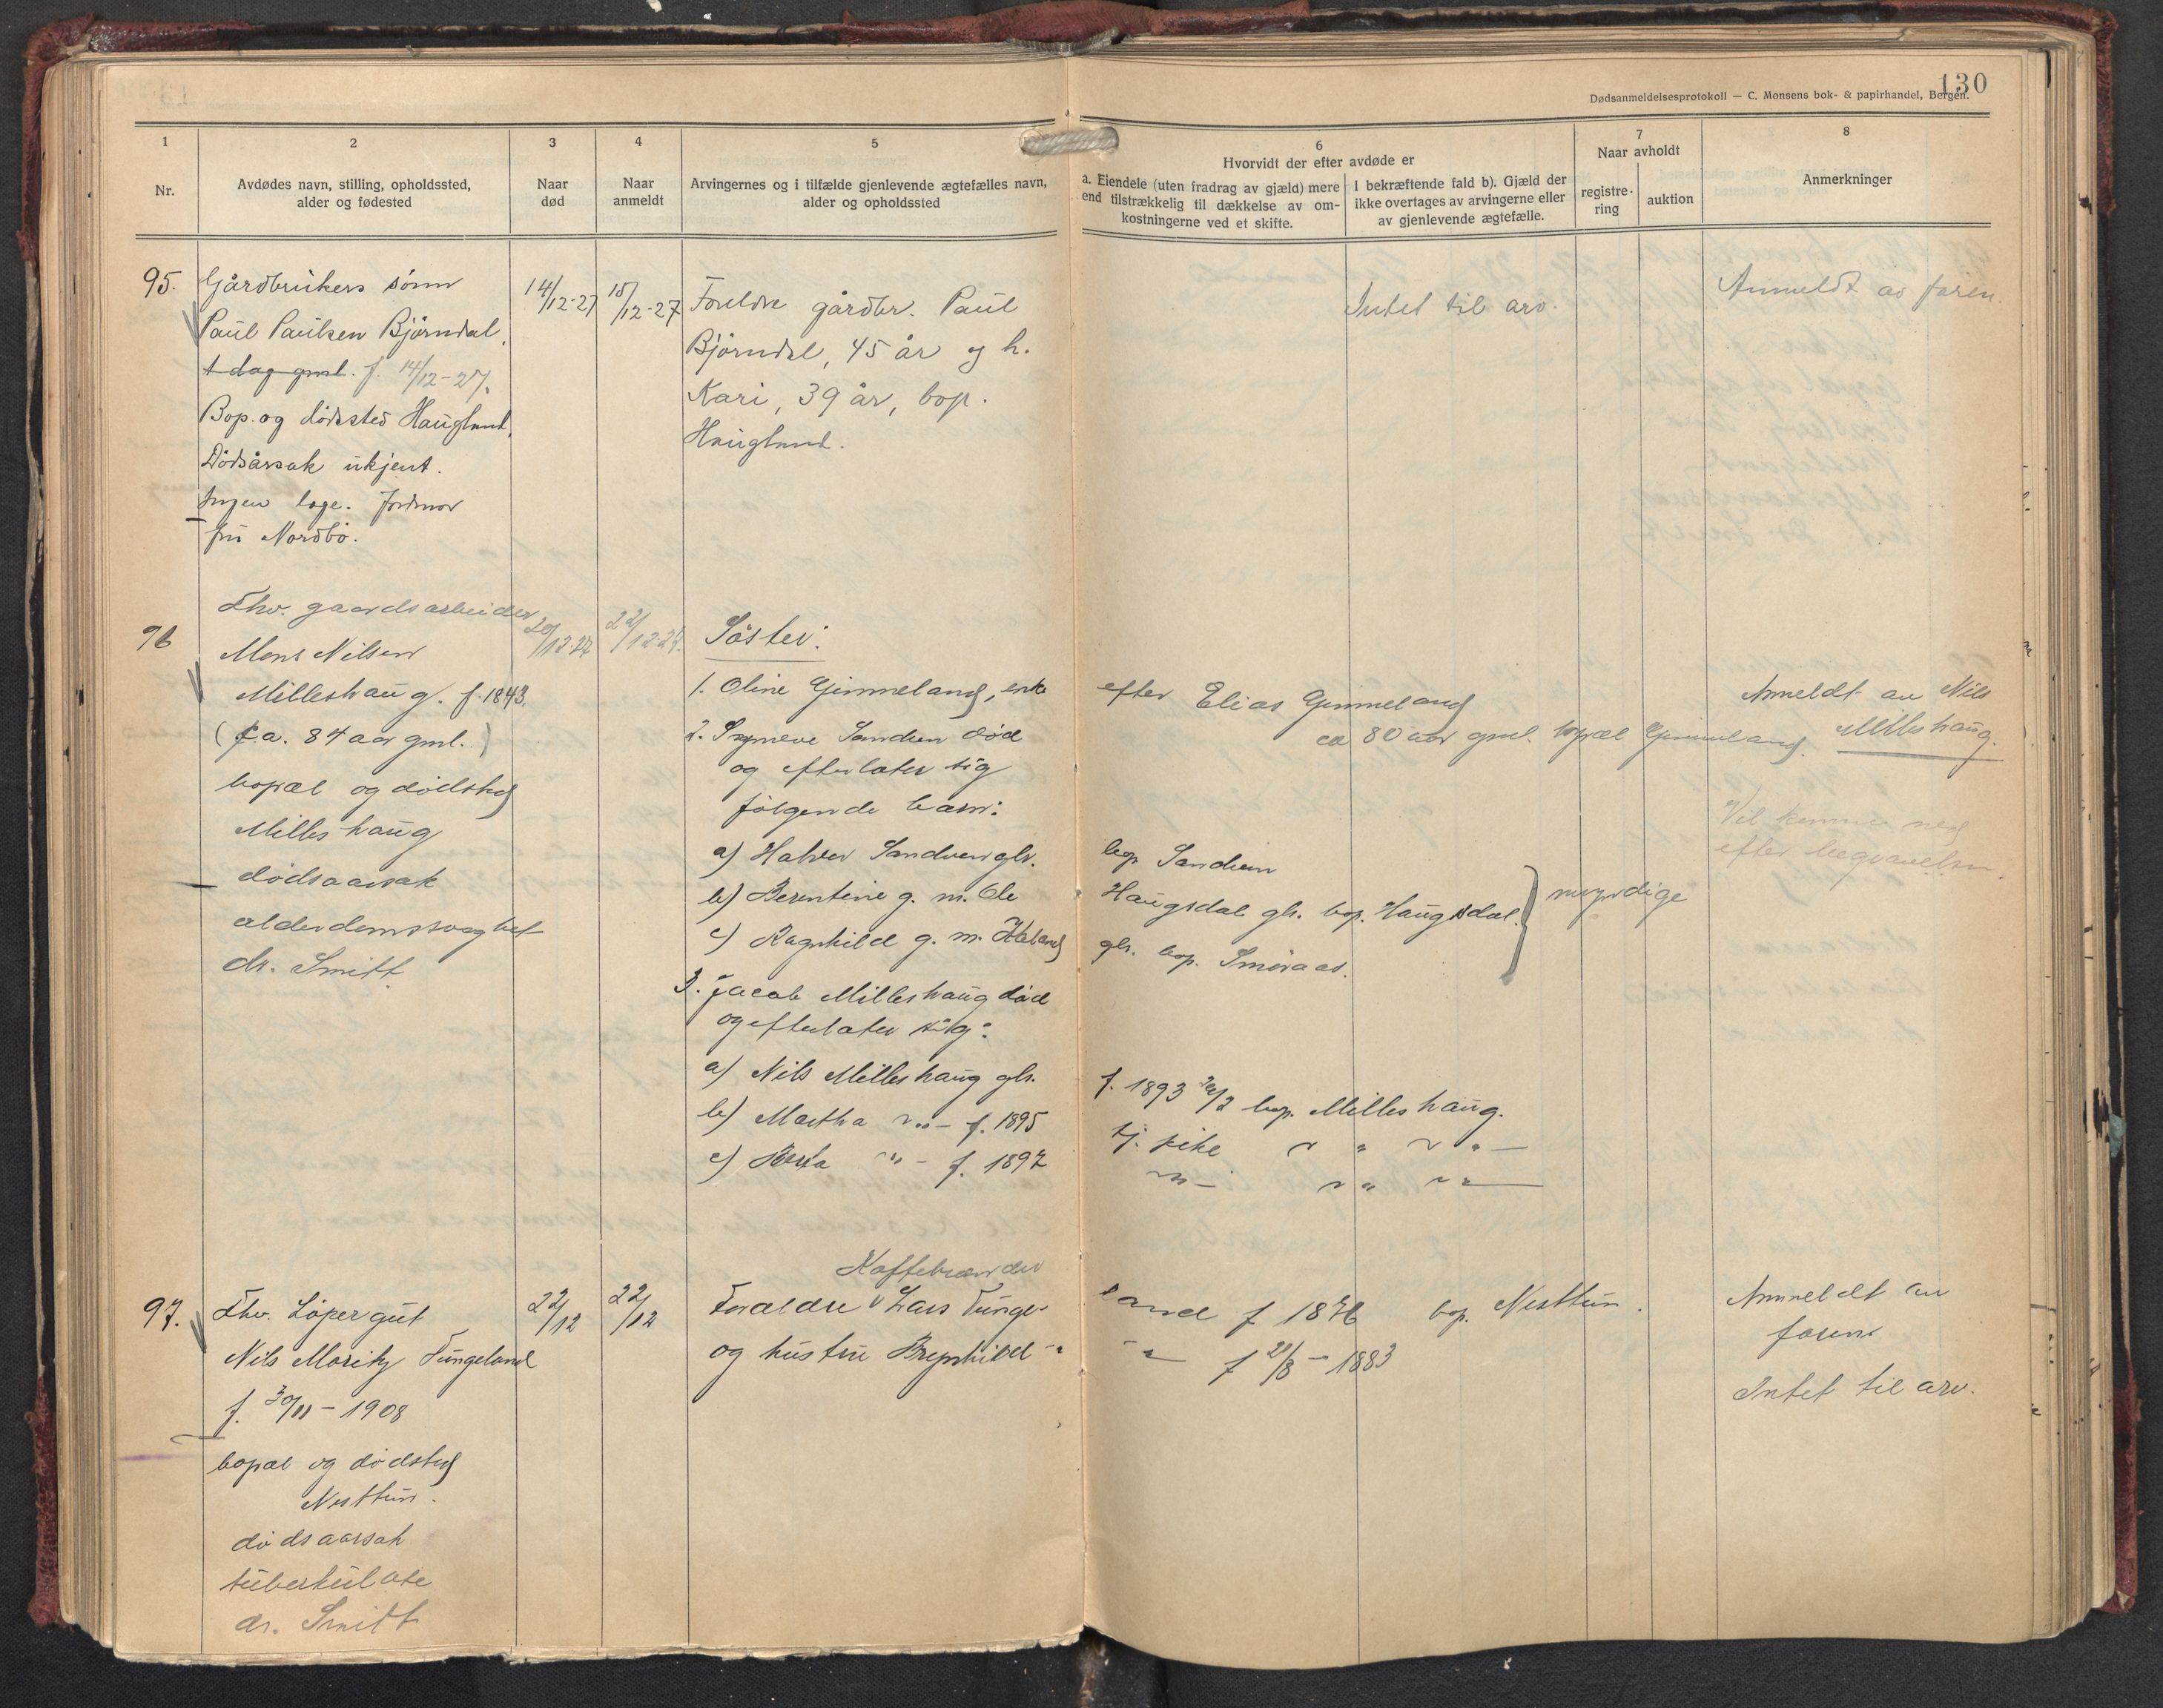 130
Dødsanmeldelsesprotokoll — C. Monsens bok- & papirhandel, Bergen.
1
Nr.
2
Avdødes navn, stilling, opholdssted,
alder og fødested
3
Naar
død
4
Naar
anmeldt
5
Arvingernes og i tilfælde gjenlevende ægtefælles navn,
alder og opholdssted
6
Hvorvidt der efter avdøde er
a. Eiendele (uten fradrag av gjæld) mere
end tilstrækkelig til dækkelse av om-
kostningerne ved et skifte.
I bekræftende fald b). Gjæld der
ikke overtages av arvingerne eller
av gjenlevende ægtefælle.
7
Naar avholdt
registre-
ring
auktion
8
Anmerkninger
95.
Gårdbrukers sönn
Paul Paulsen Björndal,
1 dag gml. f. 14/12-27.
Bop. og dödssted Haugland,
Dödsårsak ukjent.
Ingen læge. Jordmor
fru Nordbö.
14/12-27
15/12-27
Foreldre gårdbr. Paul
Björndal, 45 år og h.
Kari, 39 år, bop.
Haugland.
Intet til arv.
Anmeldt av faren.
96
Fhv. gaardsarbeider
Mons Nilsen
Milleshaug. f. 1843.
(ca. 84 aar gml.)
bopæl og dödsted
Milleshaug
dödsaarsak
alderdomssvaghet
dr. Smitt.
20/12-27
22/12-27.
Söster:
1. Oline Gimmeland, enke
efter Elias Gimmeland
ca 80 aar gml. bopæl Gimmeland.
2. Synneve Sandven död
og efterlater sig
følgende barn:
a) Halvor Sandven gbr.
bop. Sandven
b) Berentine g. m. Ole
Haugsdal gbr. bop. Haugsdal.
c) Ragnhild g. m. Håland
gbr. bop. Smöraas.
myndige
3. Jacob Milleshaug död
og efterlater sig:
a) Nils Milleshaug gbr.
f. 1893 bop. Milleshaug.
b) Martha —"— f. 1895
tj. pike " "
c) Berta —"— f. 1897
—"— " "
Anmeldt av Nils
Milleshaug.
Vil komme ned
efter begravelsen.
97.
Fhv. Löpergut
Nils Moritz Tungeland
f. 30/11-1908
bopæl og dödsted
Nesttun.
dödsaarsak
tuberkulose
dr. Smitt
22/12
22/12
Kaffebrænder
Forældre Lars Tunge-
land f 1876 bop. Nesttun.
og hustru Brynhild —"—
f 21/8-1883
Anmeldt av
faren
Intet til arv.